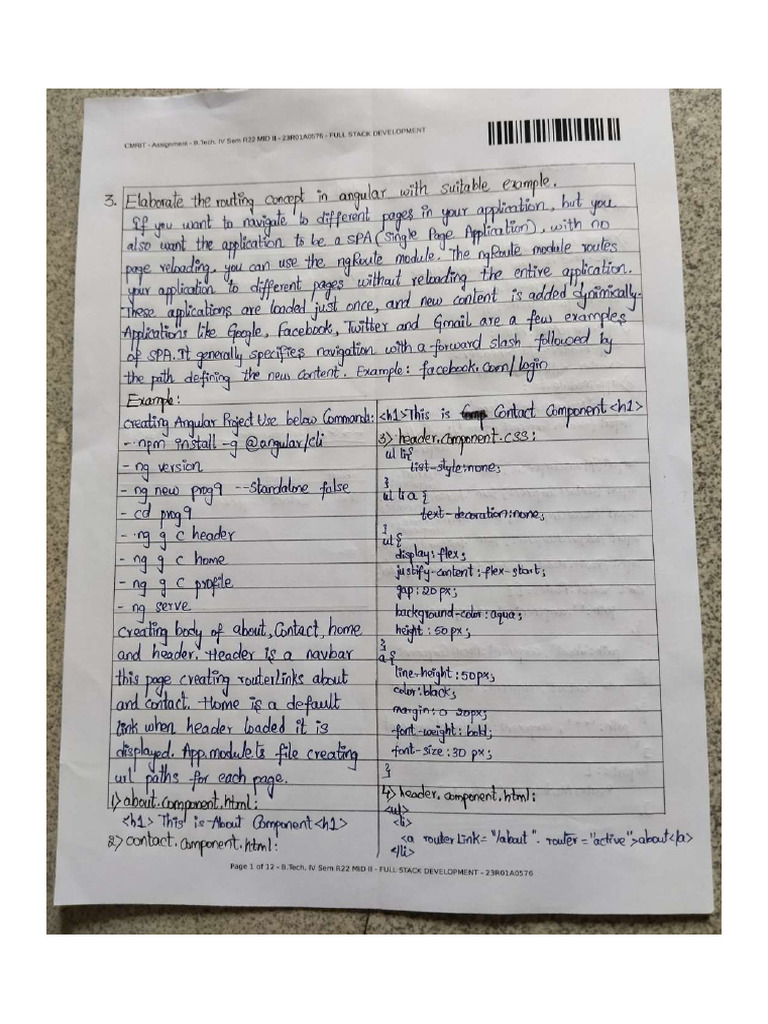 CMRIT - Assignment - B.Tech, IV Sem R22 MID II - 23R01A0576 - FULL STACK DEVELOPMENT
3. Elaborate the routing concept in angular with suitable example.
If you want to navigate to different pages in your application, but you
also want the application to be a SPA (Single Page Application), with no
page reloading, you can use the ngRoute module. The ngRoute module routes
your application to different pages without reloading the entire application.
These applications are loaded just once, and new content is added dynimically.
Applications like Google, Facebook, Twitter and Gmail are a few examples
of SPA. It generally specifies navigation with a forward slash followed by
the path defining the new content. Example: facebook.com/login
Example:
creating Angular Project Use below Commands:
- npm install -g @angular/cli
- ng version
- ng new prog9 --standalone false
- cd prog9
- ng g c header
- ng g c home
- ng g c profile
- ng serve
creating body of about, Contact, home
and header. Header is a navbar
this page creating routerlinks about
and contact. Home is a default
link when header loaded it is
displayed. App.module.ts file creating
url paths for each page.
1) about.component.html:
<h1> This is About Component<h1>
2) contact.component.html:
<h1>This is Contact Component<h1>
3) header.component.css:
ul li{
list-style:none;
}
ul li a {
text-decoration:none;
}
ul {
display: flex;
justify-content: flex-start;
gap: 20 px;
background-color: aqua;
height: 50 px;
}
a {
line-height: 50px;
color: black;
margin: 0 20px;
font-weight: bold;
font-size: 30 px;
}
4) header.component.html:
<ul>
<li>
<a routerLink= "/about". router= "active">about</a>
</li>
Page 1 of 12 - B.Tech, IV Sem R22 MID II - FULL STACK DEVELOPMENT - 23R01A0576